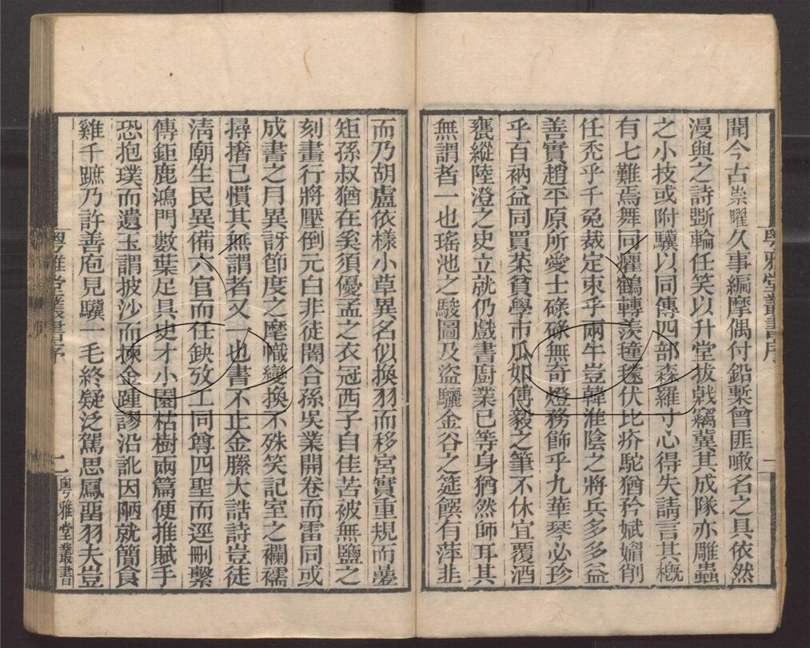 聞今古崇曜久事編摩偶付鉛槧曾匪噉名之具依然
漫與之詩斵輪任笑以升堂拔戟竊冀其成隊亦雕蟲
之小技或附驥以同傳四部森羅寸心得失請言其槪
有七難焉舞同癯鶴轉羨𣯶毸伏比疥駝猶矜斌媚削
任禿乎千兔裁定束乎兩牛豈韓淮陰之將兵多多益
善實趙平原所愛士碌碌無奇燈務飾乎九華琴必珍
乎百衲益同買菜貧學市瓜如傅毅之筆不休宜覆酒
甕縱陸澄之史立就仍戲書廚業已等身猶然師耳其
無謂者一也瑤池之駿圖及盜驪金谷之筵饌有萍韭
粤雅堂叢書序
一
而乃胡盧依樣小草異名似換羽而移宮實重規而疊
矩孫叔猶在奚須優孟之衣冠西子自佳苦被無鹽之
刻畫行將壓倒元白非徒闇合孫吳業開卷而雷同或
成書之月異訝節度之麾幟變換不殊笑記室之襴襦
撏撦已慣其無謂者又一也書不止金縢大誥詩豈徒
清廟生民異備六官而任缺攷工同尊四聖而逕刪繫
傳鉅鹿鴻門數葉足具史才小園枯樹兩篇便推賦手
恐抱璞而遺玉謂披沙而揀金踵謬沿訛因陋就簡食
雞千蹠乃許善庖見驥一毛終疑泛駕思鳳畱羽夫豈
粤雅堂叢書序
二
粤雅堂叢書